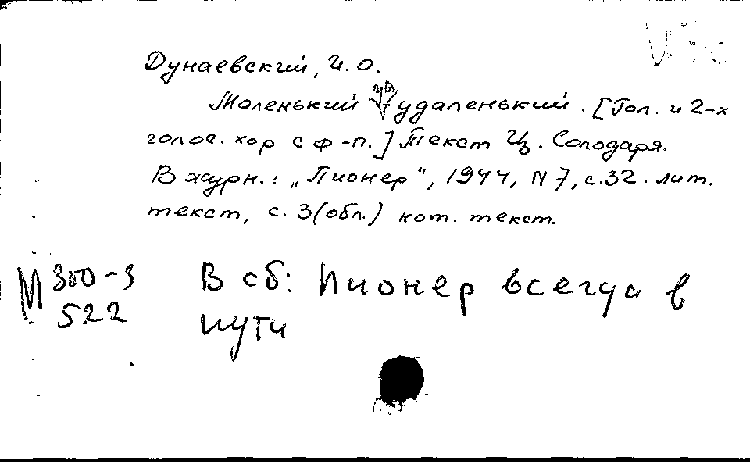 Дунаевский, И.О.
Маленький да удаленький. [Гол. и 2-х
голос. хор с ф-п.] Текст Ц. Солодаря.
В журн.: „Пионер", 1944, N 7, с.32. лит.
текст, с. 3(обл.) нот. текст.
М 380-3
522
В сб: Пионер всегда в
пути